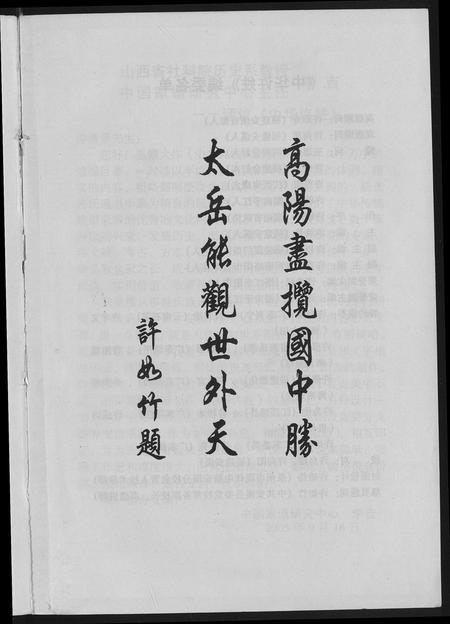 高陽盡攬國中勝
太岳能觀世外天
許如竹題